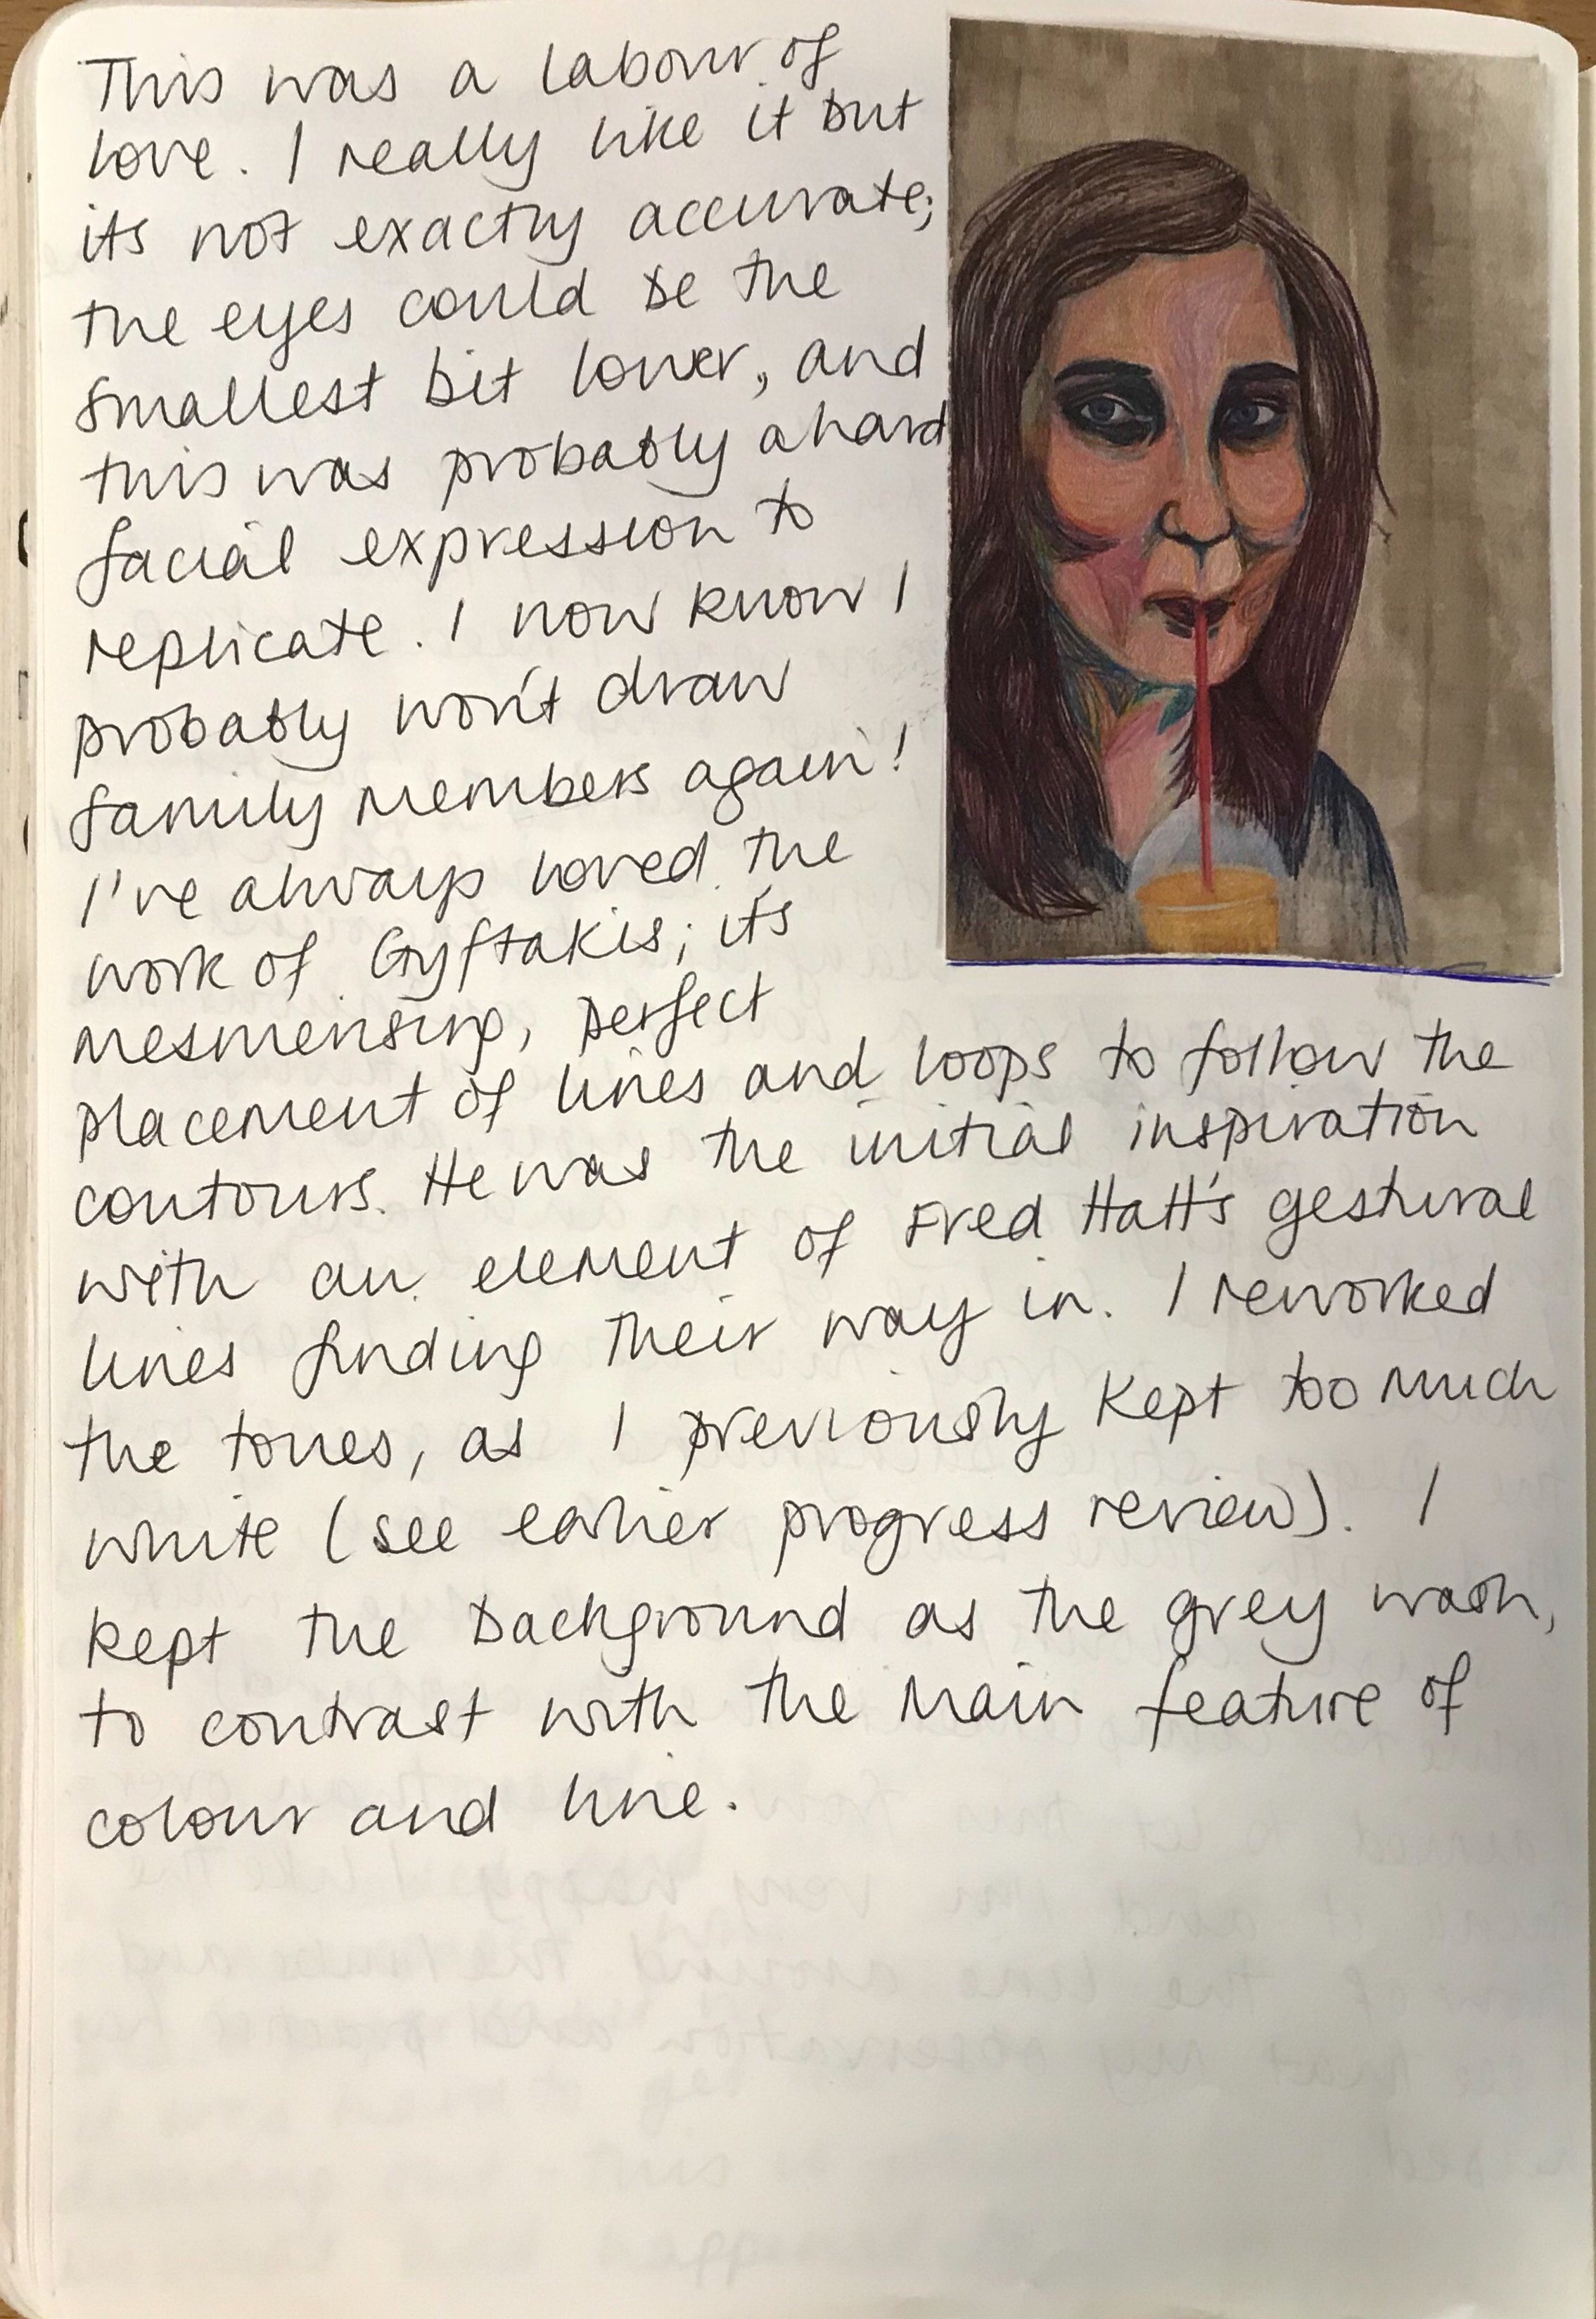 This was a labour of
love. I really like it but
its not exactly accurate;
the eyes could be the
smallest bit lower, and
this was probably a hard
facial expression to
replicate. I now know I
probably won't draw
family members again!
I've always loved the
work of Gyftakis; it's
mesmerising, perfect
placement of lines and loops to follow the
contours. He was the initial inspiration
with an element of Fred Hatt's gestural
lines finding their way in. I reworked
the tones, as I previously kept too much
white (see earlier progress review). I
kept the background as the grey wash,
to contrast with the main feature of
colour and line.